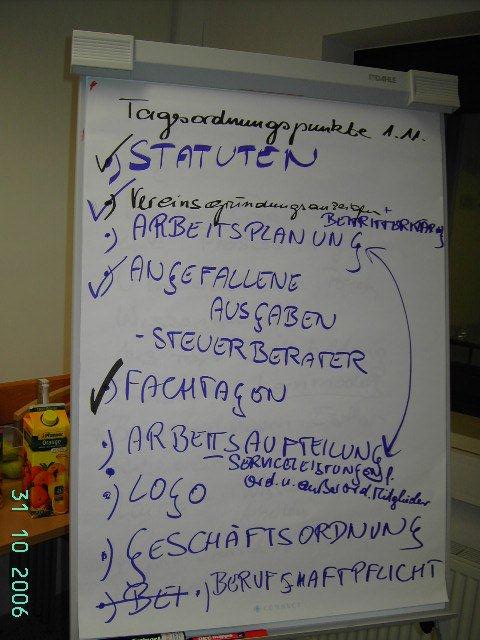 DAHLE
Tagesordnungspunkte 1.11.
•) STATUTEN
•) Vereinsgründungsanzeigen +
BEITRITTERKLÄRG
•) ARBEITSPLANUNG
•) ANGEFALLENE
AUSGABEN
- STEUERBERATER
•) FACHTAGON
•) ARBEITSAUFTEILUNG
SERVICELEISTUNGEN f.
ord. u. außerord. Mitglieder
•) LOGO
•) GESCHÄFTSORDNUNG
•) BET. •) BERUFSHAFTPFLICHT
CONNECT
Orange
31 10 2006